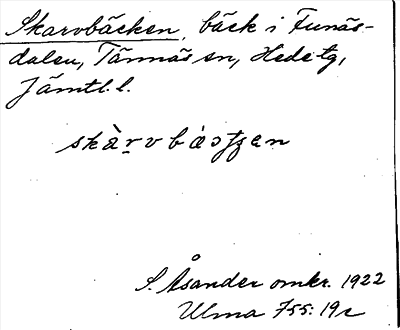 Skarvbäcken, bäck i Funäs-
dalen, Tännäs sn, Hede tg,
Jämtl. l.
S. Åsander omkr. 1922
Ulma 755: 19